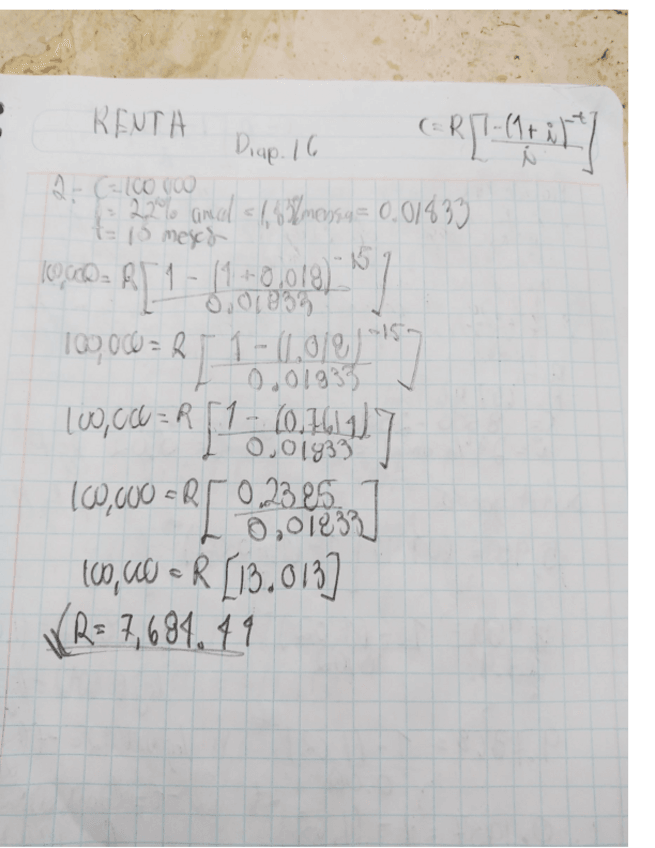 RENTA
Diap. 16
C = R [1-(1+i)^-t / i]
2.- C=100,000
i= 22% anual = 1.83% mensual = 0.01833
t= 15 meses
100,000= R [1 - (1+0.018)^-15 / 0.01833]
100,000 = R [1 - (1.018)^-15 / 0.01833]
100,000 = R [1 - (0.7614) / 0.01833]
100,000 = R [0.2385 / 0.01833]
100,000 = R [13.013]
R= 7,684.44